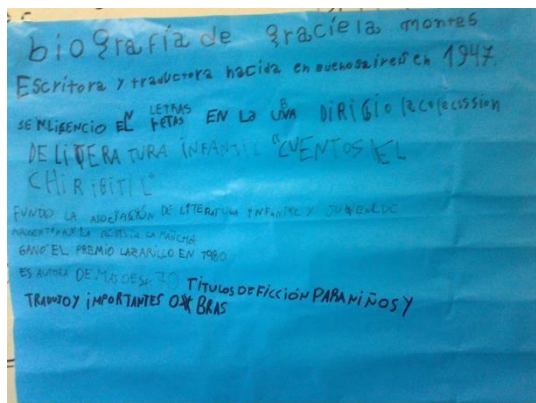 biografía de graciela montes
Escritora y traductora nacida en buenosaires en 1947.
SE NLISENCIO EN LETRAS EN LA UBA DIRIGIO la colecssion
DE LITERATURA INFANTIL "CUENTOS EL
CHIRIBITIL"
FUNDO LA ASOCIASIÓN DE LITERATURA INFANTIL Y JUVENIL DE
LA MANCHA
GANO EL PREMIO LAZARILLO EN 1980
ES AUTORA DE MAS DESE 70 TÍTULOS DE FICCIÓN PARA NIÑOS Y
TRADUJO Y IMPORTANTES OBRAS